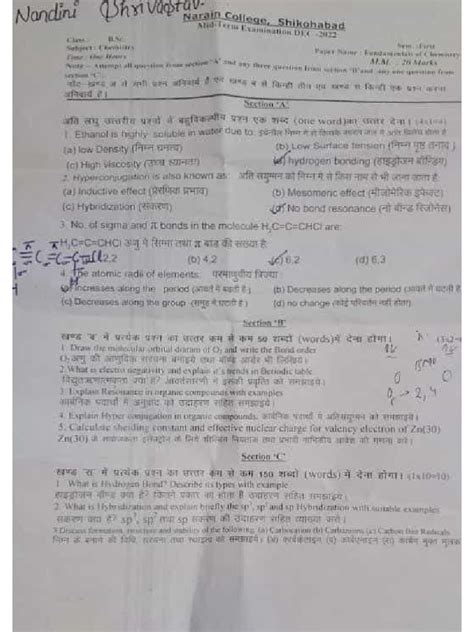 Nandini Shrivastav
Narain College, Shikohabad
Mid-Term Examination DEC -2022
Class : B.Sc. Sem. :First
Subject : Chemistry Paper Name : Fundamentals of Chemistry
Time : One Hours M.M. : 20 Marks
Note – Attempt all question from section 'A' and any three question from section 'B' and any one question from
section 'C'.
नोट- खण्ड अ से सभी प्रश्न अनिवार्य है एवं खण्ड ब से किन्ही तीन एवं खण्ड स से किन्ही एक प्रश्न करना
अनिवार्य है।
Section 'A'
अति लघु उत्तरीय प्रश्नों में बहुविकल्पीय प्रश्न एक शब्द (one word)का उत्तर देना।
1. Ethanol is highly- soluble in water due to:
(a) low Density (निम्न घनत्व) (b) Low Surface tension (निम्न पृष्ठ तनाव)
(c) High viscosity (उच्च श्यानता) (d) hydrogen bonding (हाइड्रोजन बॉण्डिंग)
2. Hyperconjugation is also known as: अति संयुग्मन को निम्न में से किस नाम से भी जाना जाता है:
(a) Inductive effect (प्रेरणिक प्रभाव) (b) Mesomeric effect (मीजोमेरिक इफेक्ट)
(c) Hybridization (संकरण) (d) No bond resonance (नो बौन्ड रिजोनेंस)
3. No. of sigma and π bonds in the molecule H₂C=C=CHCl are:
H₂C=C=CHCl अणु में सिग्मा तथा π बांड की संख्या है:
2,2 (b) 4,2 (c) 6,2 (d) 6,3
4. The atomic radii of elements: परमाणुवीय त्रिज्या:
(a) Increases along the period (आवर्त में बढ़ती है) (b) Decreases along the period (आवर्त में घटती है)
(c) Decreases along the group (समूह में घटती है) (d) no change (कोई परिवर्तन नहीं होता)
Section 'B'
खण्ड 'ब' में प्रत्येक प्रश्न का उत्तर कम से कम 50 शब्दों (words)में देना होगा।
1. Draw the molecular orbital diagram of O₂ and write the Bond order
O₂ अणु की आणुविक संरचना बनाइये तथा बॉण्ड आर्डर भी लिखिये।
2.What is electro negativity and explain it's trends in Periodic table
विद्युतऋणात्मकता क्या है? आवर्तसारणी में इसकी प्रवृति को समझाइये।
3. Explain Resonance in organic compounds with examples
कार्बनिक पदार्थों में अनुनाद को उदाहरण सहित समझाइये।
4. Explain Hyper conjugation in organic compounds. कार्बनिक पदार्थों में अतिसंयुग्मन को समझाइये।
5. Calculate sheilding constant and effective nuclear charge for valency electron of Zn(30)
Section 'C'
खण्ड 'स' में प्रत्येक प्रश्न का उत्तर कम से कम 150 शब्दों (words) में देना होगा। (1x10=10)
1. What is Hydrogen Bond? Describe its types with example
हाइड्रोजन बॉण्ड क्या है? कितने प्रकार का होता है उदाहरण सहित समझाइये।
2. What is Hybridization and explain briefly the sp³, sp² and sp Hybridization with suitable examples
संकरण क्या है? sp³, sp² तथा sp संकरण की उदाहरण सहित व्याख्या करो।
3.Discuss formation, structure and stability of the following. (a) Carbocation (b) Carbanions (c) Carbon free Redicals